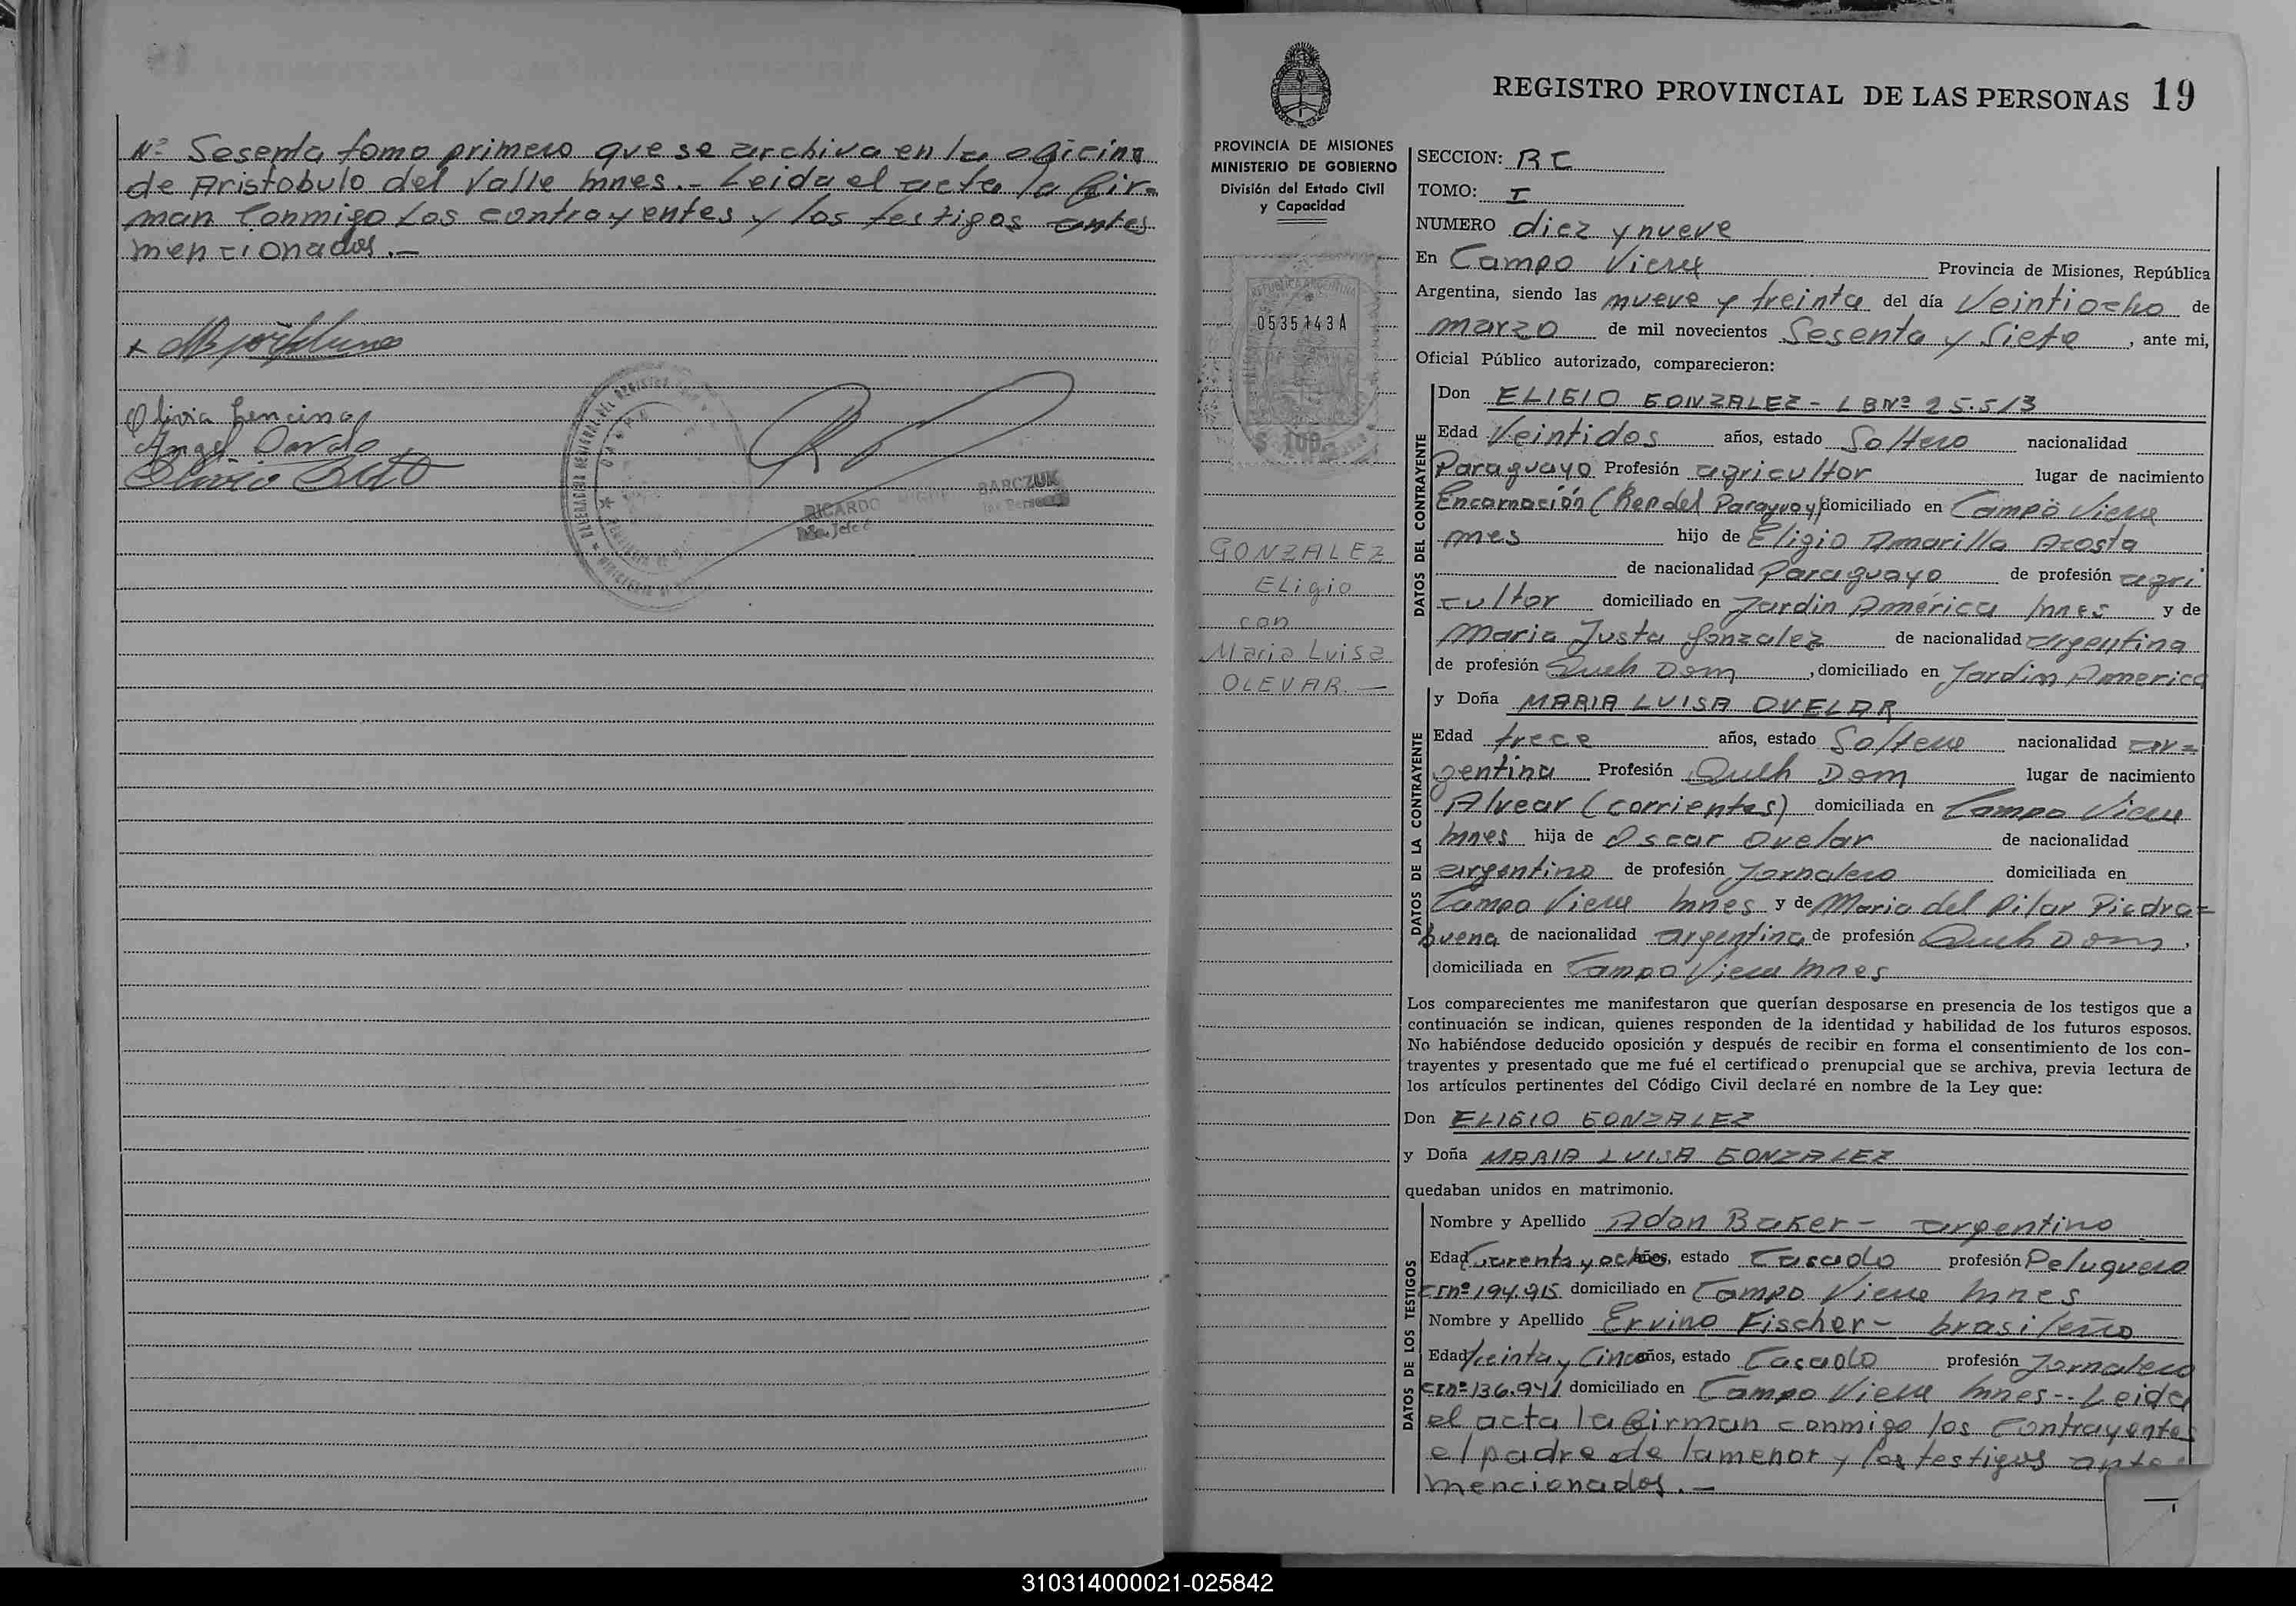 Nº Sesenta tomo primero que se archiva en la oficina
de Aristobulo del Valle Mnes.- Leida el acta la fir-
man conmigo los contrayentes y los testigos antes
mencionados.-
Olivia Lencina
Angel Dardo
RICARDO MIGUEL BARCZUK
REGISTRO PROVINCIAL DE LAS PERSONAS 19
PROVINCIA DE MISIONES
MINISTERIO DE GOBIERNO
División del Estado Civil
y Capacidad
REPUBLICA ARGENTINA
0535143A
$ 100
GONZALEZ
Eligio
con
Maria Luisa
OLEVAR.-
SECCION: RC
TOMO: I
NUMERO diez y nueve
En Campo Viera Provincia de Misiones, República
Argentina, siendo las nueve y treinta del día Veintiocho de
marzo de mil novecientos Sesenta y Siete, ante mi,
Oficial Público autorizado, comparecieron:
DATOS DEL CONTRAYENTE
Don ELIGIO GONZALEZ - LBNº 25.513
Edad Veintidos años, estado Soltero nacionalidad
Paraguayo Profesión agricultor lugar de nacimiento
Encarnación (Rep del Paraguay) domiciliado en Campo Viera
mnes hijo de Eligio Amarilla Acosta
de nacionalidad Paraguayo de profesión agri
cultor domiciliado en Jardin América Mnes y de
Maria Justa Gonzalez de nacionalidad argentina
de profesión Queh Dom, domiciliado en Jardin America
DATOS DE LA CONTRAYENTE
y Doña MARIA LUISA OVELAR
Edad trece años, estado Soltera nacionalidad ar=
gentina Profesión Queh Dom lugar de nacimiento
Alvear (corrientes) domiciliada en Campo Viera
Mnes hija de Oscar Ovelar de nacionalidad
argentino de profesión Jornalero domiciliada en
Campo Viera Mnes y de Maria del Pilar Piedra=
buena de nacionalidad argentina de profesión Queh Dom,
domiciliada en Campo Viera Mnes
Los comparecientes me manifestaron que querían desposarse en presencia de los testigos que a
continuación se indican, quienes responden de la identidad y habilidad de los futuros esposos.
No habiéndose deducido oposición y después de recibir en forma el consentimiento de los con-
trayentes y presentado que me fué el certificado prenupcial que se archiva, previa lectura de
los artículos pertinentes del Código Civil declaré en nombre de la Ley que:
Don ELIGIO GONZALEZ
y Doña MARIA LUISA GONZALEZ
quedaban unidos en matrimonio.
DATOS DE LOS TESTIGOS
Nombre y Apellido Adan Baker - argentino
Edad Cuarenta y ocho años, estado Casado profesión Peluquero
CInº 194.915 domiciliado en Campo Viera Mnes
Nombre y Apellido Ervino Fischer - brasileño
Edad treinta y Cinco años, estado Casado profesión Jornalero
CInº 136.941 domiciliado en Campo Viera Mnes-- Leida
el acta la firman conmigo los contrayentes
el padre de la menor y los testigos antes
mencionados.-
310314000021-025842